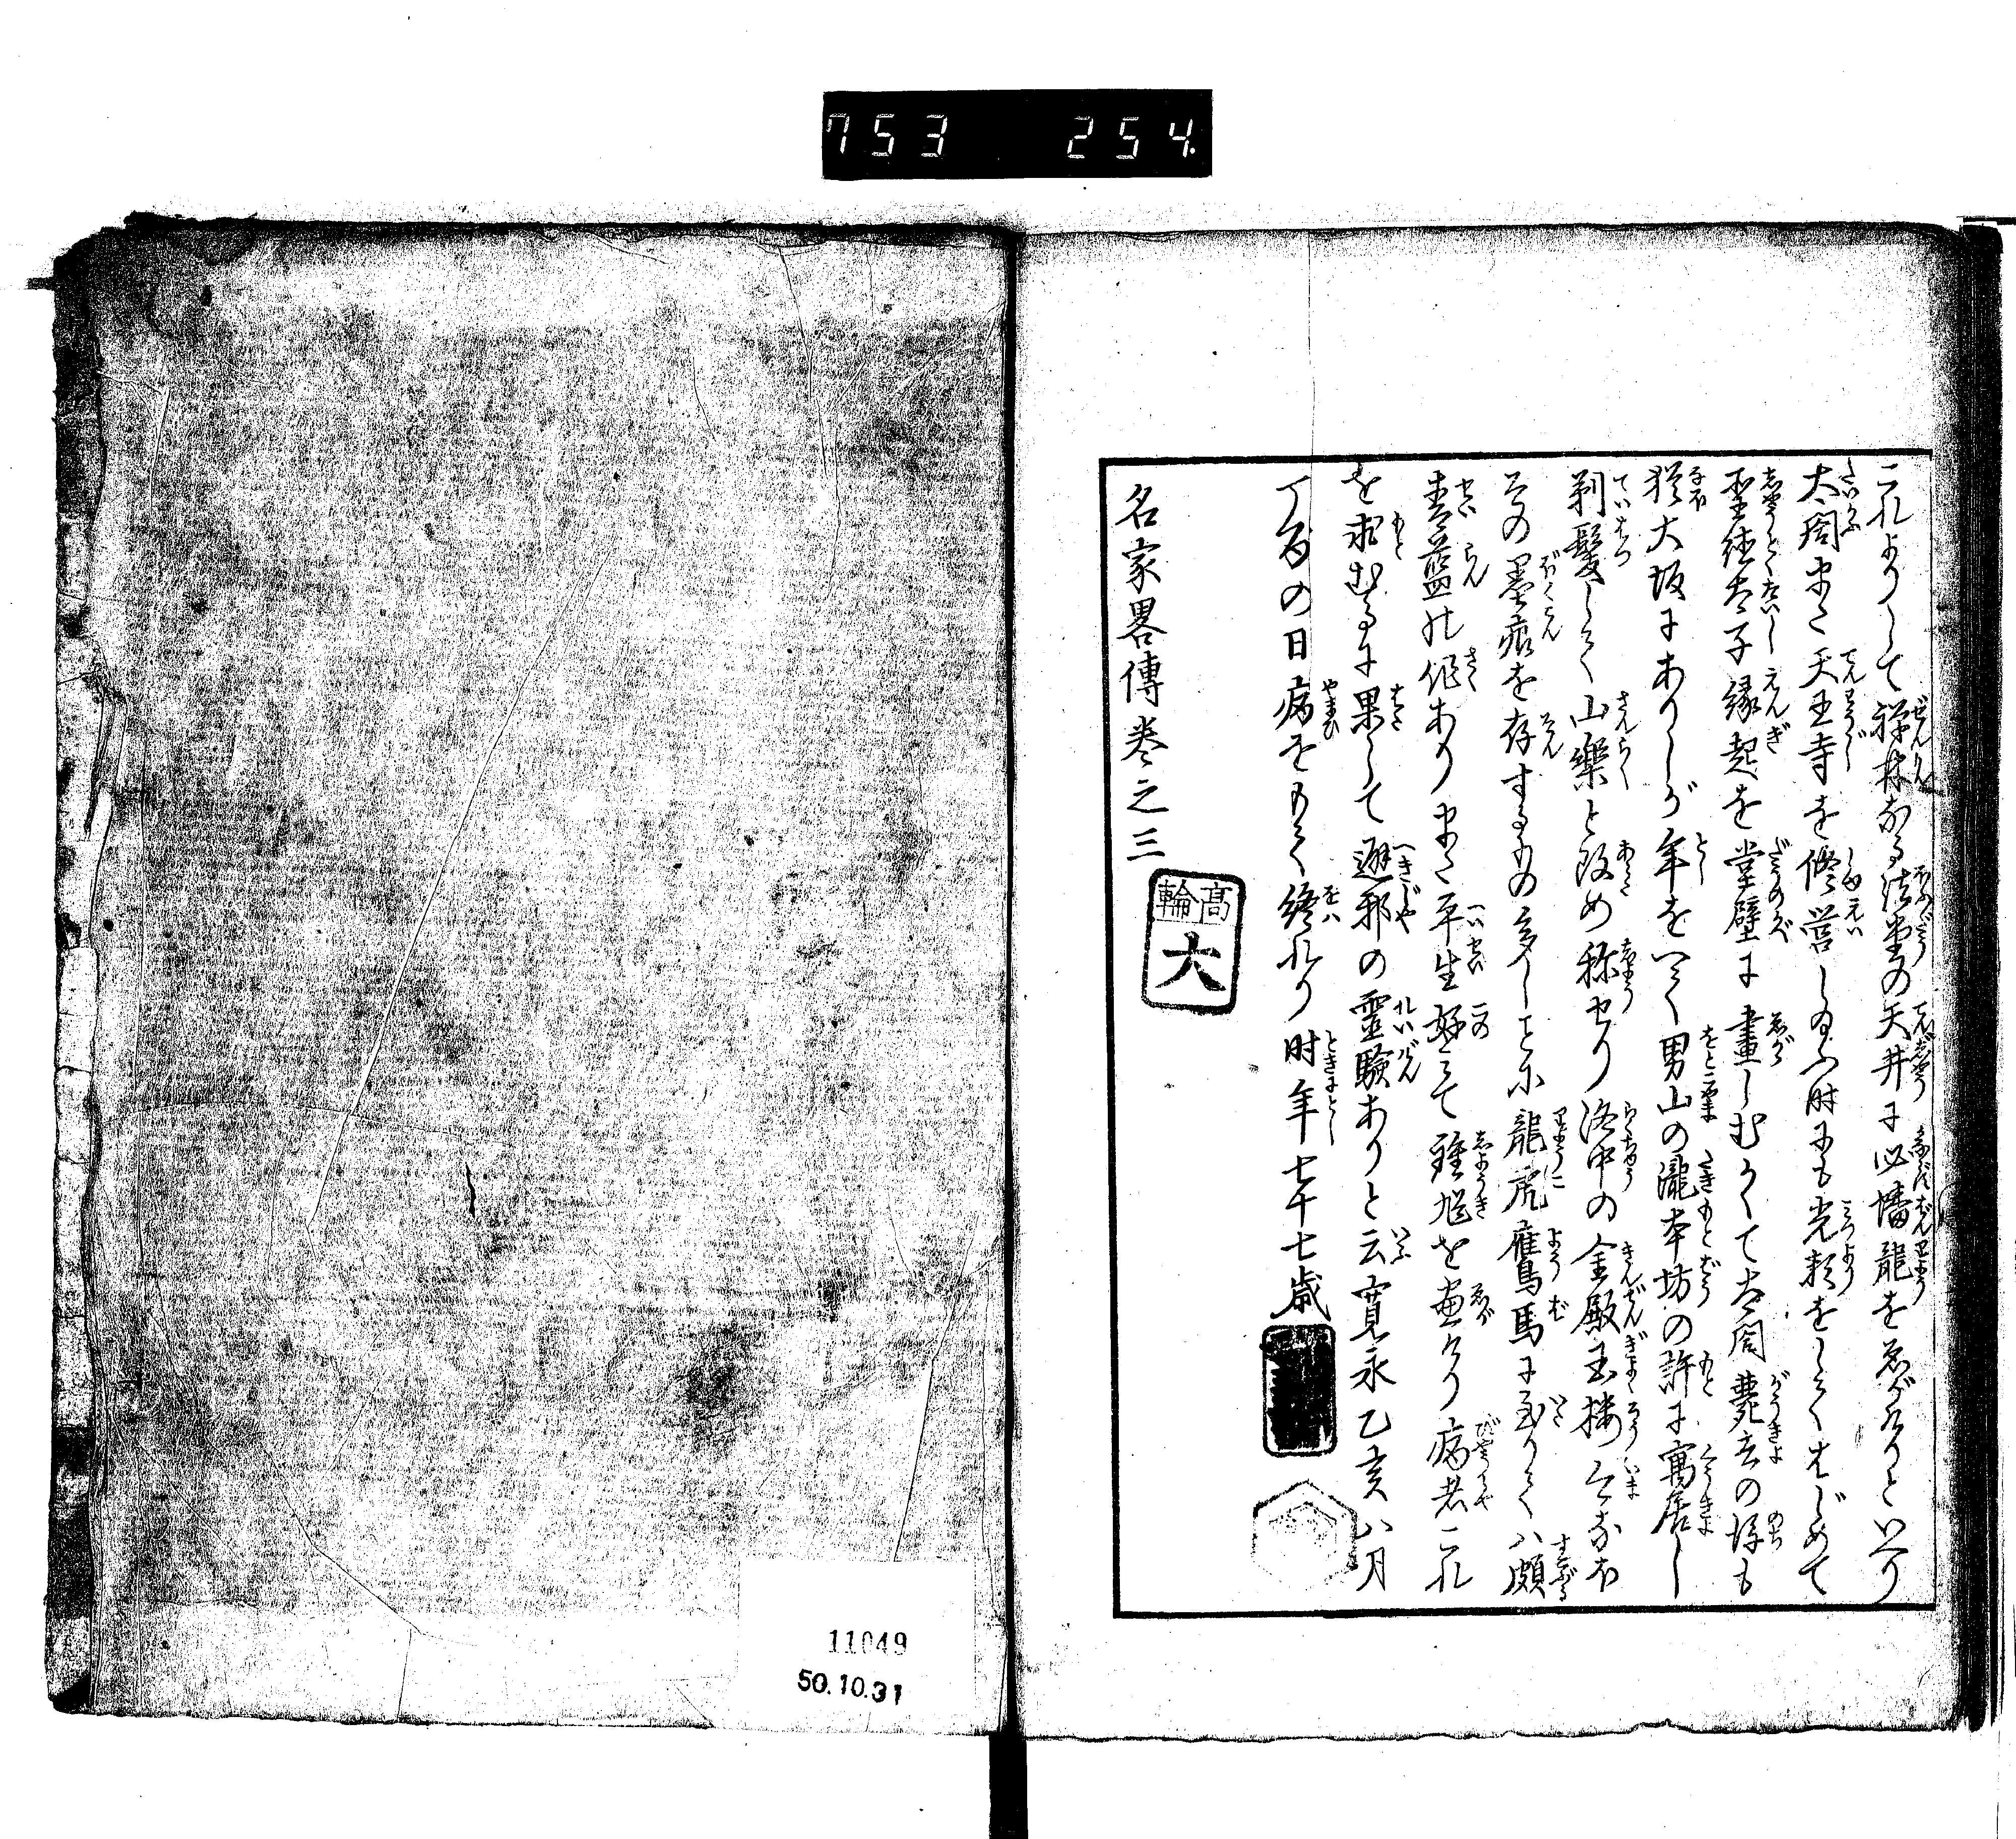 753 254.
これよりして禅林なる法堂の天井に必蟠龍をゑがけりといへり
大閤また天王寺を修営し給ふ時にも光頼をしてはじめて
聖徳太子縁起を堂壁に畫しむかくて大閤薨去の後も
猶大坂にありしが年をへて男山の瀧本坊の許に寓居し
剃髮して山樂と改め称せり洛中の金殿玉楼今なほ
その墨痕を存するもの多しことに龍虎鷹馬に至りては頗
青藍の作ありまた平生好みて鍾馗を画けり病者これ
を求むるに果して避邪の靈驗ありと云寛永乙亥八月
の日病をもて終れり時年七十七歳
名家畧傳巻之三
高輪
大
11049
50.10.31